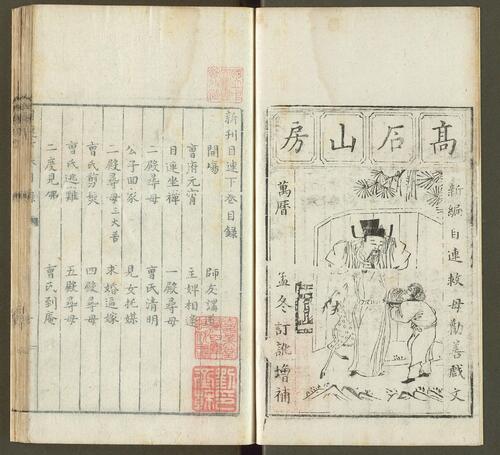 高石山房
新編目連救母勸善戲文
萬曆
孟冬訂訛增補
新刊目連下卷目錄
開塲 師友講道
曹府元宵 主婢相逢
目連坐禪 一殿尋母
二殿尋母 曹氏清明
公子回家 見女托媒
三殿尋母 求婚逼嫁
曹氏剪髮 四殿尋母
曹氏逃難 五殿尋母
二度見佛 曹氏到庵